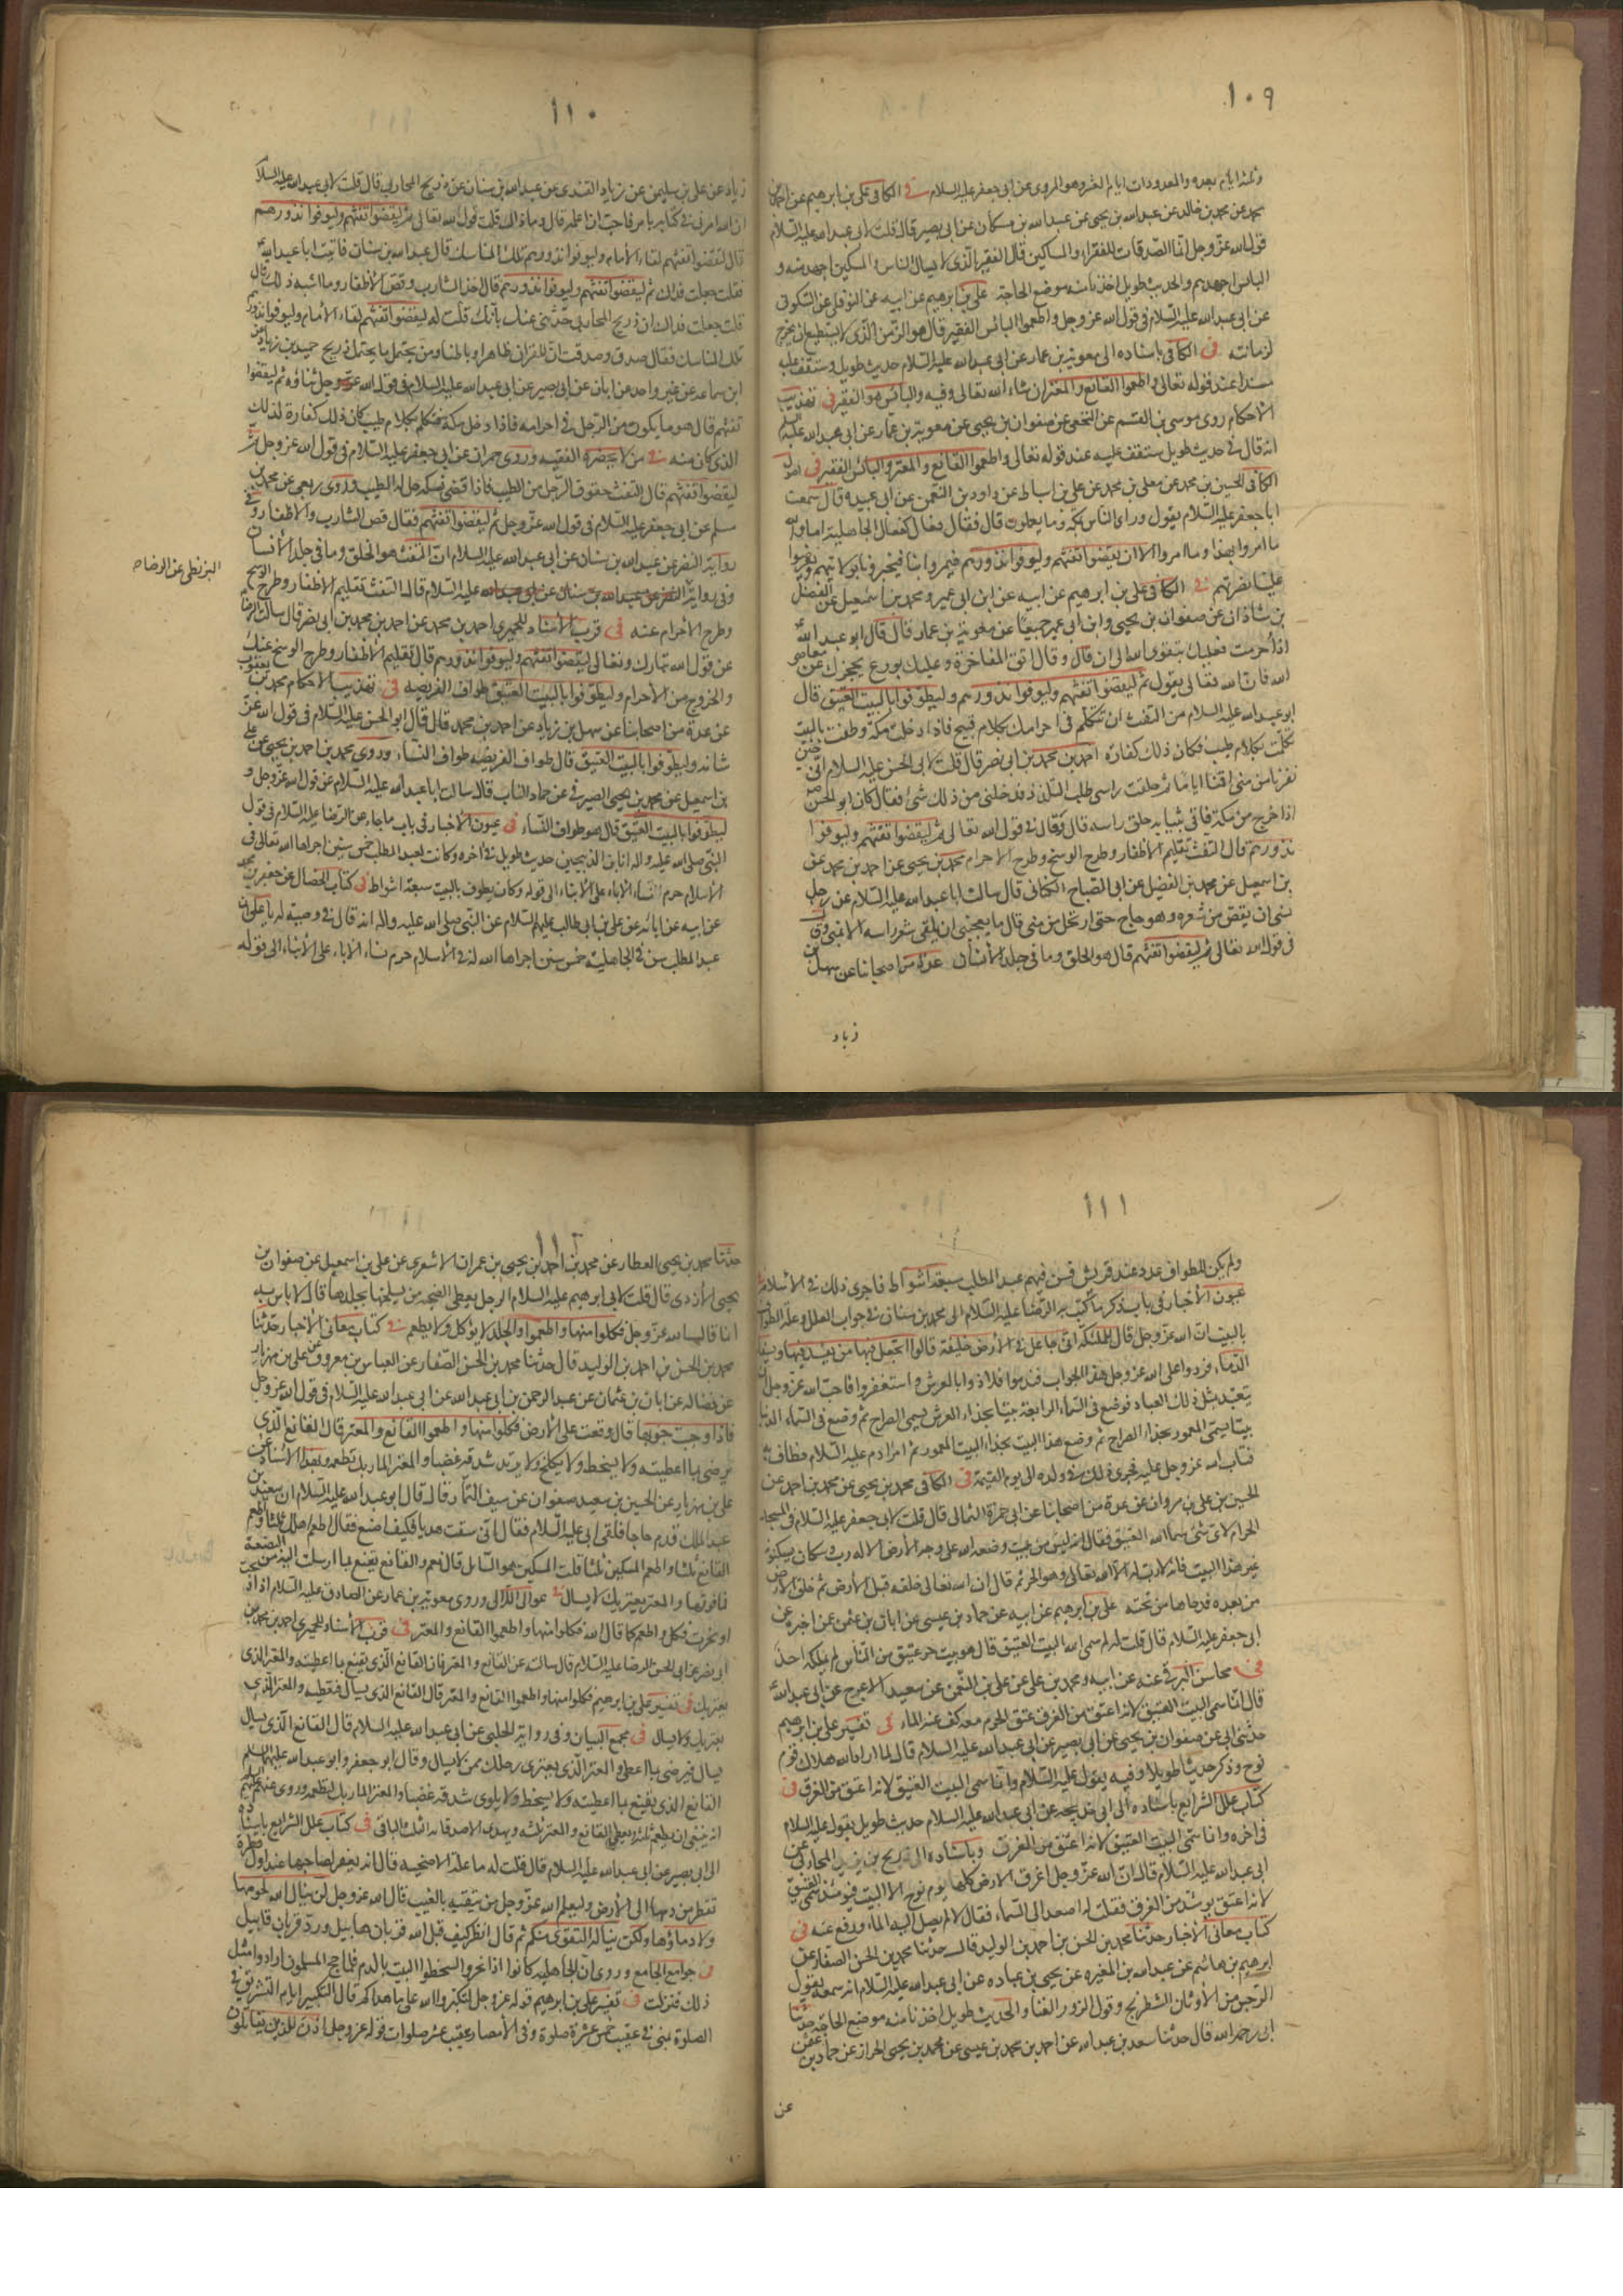 ١٠٩
وثلثة ايام بعده والمعدودات ايام التشريق وهو المروى عن ابى جعفر عليه السلام فى الكافى على بن ابراهيم عن احمد بن
محمد عن محمد بن خالد عن عبد الله بن يحيى عن عبد الله بن مسكان عن ابى بصير قال قلت لابى عبد الله عليه السلام
قول الله عز وجل انما الصدقات للفقراء والمساكين قال الفقير الذى لا يسال الناس والمسكين اجهد منه و
البائس اجهدهم والحديث طويل اخذنا منه موضع الحاجة على بن ابراهيم عن ابيه عن النوفلى عن السكونى
عن ابى عبد الله عليه السلام فى قول الله عز وجل واطعموا البائس الفقير قال هو الزمن الذى لا يستطيع ان يخرج
لزمانته فى الكافى باسناده الى معوية بن عمار عن ابى عبد الله عليه السلام حديث طويل وستقف عليه
مسندا عند قوله تعالى واطعموا القانع والمعتر ان شاء الله تعالى وفيه والبائس هو الفقير فى تهذيب
الاحكام روى موسى بن القسم عن النخعى عن صفوان بن يحيى عن معوية بن عمار عن ابى عبد الله عليه السلم
انه قال فى حديث طويل ستقف عليه عند قوله تعالى واطعموا القانع والمعتر والبائس الفقير فى اصول
الكافى الحسين بن محمد عن معلى بن محمد عن على بن اسباط عن داود بن النعمن عن ابى عبيدة قال سمعت
ابا جعفر عليه السلام يقول وراى الناس بمكة وما يعملون قال فقال فعال كفعال الجاهلية اما والله
ما امروا بهذا وما امروا الا ان يقضوا تفثهم وليوفوا نذورهم فيمروا بنا فيخبرونا بولايتهم ويعرضوا
علينا نصرتهم فى الكافى على بن ابراهيم عن ابيه عن ابن ابى عمير ومحمد بن اسمعيل عن الفضل
بن شاذان عن صفوان بن يحيى وابن ابى عمير جميعا عن معوية بن عمار قال قال ابو عبد الله
اذا احرمت فعليك بتقوى الله الى ان قال وقال اتق المفاخرة وعليك بورع يحجزك عن معاصى
الله فان الله تعالى يقول ثم ليقضوا تفثهم وليوفوا نذورهم وليطوفوا بالبيت العتيق قال
ابو عبد الله عليه السلام من التفث ان تتكلم فى احرامك بكلام قبيح فاذا دخلت مكة وطفت بالبيت
تكلمت بكلام طيب فكان ذلك كفارة احمد بن محمد بن ابى نصر قال قلت لابى الحسن عليه السلام انى حين
نفرنا من منى اقمنا اياما ثم حلقت راسى طلب التلذذ فدخلنى من ذلك شئ فقال كان ابو الحسن ص
اذا خرج من مكة فاتى بثيابه حلق راسه قال وقال فى قول الله تعالى ثم ليقضوا تفثهم وليوفوا
نذورهم قال التفث تقليم الاظفار وطرح الوسخ وطرح الاحرام محمد بن يحيى عن احمد بن محمد عن
بن اسمعيل عن محمد بن الفضيل عن ابى الصباح الكنانى قال سالت ابا عبد الله عليه السلام عن رجل
نسى ان يقصر من شعره وهو حاج حتى ارتحل من منى قال ما يعجبنى ان يلقى شعر راسه الا بمنى وقال
فى قول الله تعالى ثم ليقضوا تفثهم قال هو الحلق وما فى جلد الانسان عدة من اصحابنا عن سهل بن
زياد
١١٠
زياد عن على بن سليمن عن زياد القندى عن عبد الله بن سنان عن ذريح المحاربى قال قلت لابى عبد الله عليه السلام
ان الله امرنى فى كتابه بامر فاحب ان اعلمه قال وما ذاك قلت قول الله تعالى ثم ليقضوا تفثهم وليوفوا نذورهم
قال ليقضوا تفثهم لقاء الامام وليوفوا نذورهم تلك المناسك قال عبد الله بن سنان فاتيت ابا عبد الله
فقلت جعلت فداك ثم ليقضوا تفثهم وليوفوا نذورهم قال اخذ الشارب وقص الاظفار وما اشبه ذلك قال
قلت جعلت فداك ان ذريح المحاربى حدثنى عنك بانك قلت له ليقضوا تفثهم لقاء الامام وليوفوا نذورهم
تلك المناسك فقال صدق وصدقت ان للقران ظاهرا وباطنا ومن يحتمل ما يحتمل ذريح حميد بن زياد عن
ابن سماعه عن غير واحد عن ابان عن ابى بصير عن ابى عبد الله عليه السلام فى قول الله عز وجل ثناؤه ثم ليقضوا
تفثهم قال هو ما يكون من الرجل فى احرامه فاذا دخل مكة فتكلم بكلام طيب كان ذلك كفارة لذلك
الذى كان منه فى من لا يحضره الفقيه وروى حمران عن ابى جعفر عليه السلام فى قول الله عز وجل ثم
ليقضوا تفثهم قال التفث حفوف الرجل من الطيب فاذا قضى نسكه حل له الطيب وروى ربعى عن محمد بن
مسلم عن ابى جعفر عليه السلام فى قول الله عز وجل ثم ليقضوا تفثهم فقال قص الشارب والاظفار وفى
رواية النضر عن عبد الله بن سنان عن ابى عبد الله عليه السلام ان التفث هو الحلق وما فى جلد الانسان
وفى رواية النضر عن عبد الله بن سنان عن ابى عبد الله عليه السلام قال التفث تقليم الاظفار وطرح الوسخ
البزنطى عن الرضا ع
وطرح الاحرام عنه فى قرب الاسناد للحميرى احمد بن محمد عن احمد بن محمد بن ابى نصر قال سالت الرضا
عن قول الله تبارك وتعالى ليقضوا تفثهم وليوفوا نذورهم قال تقليم الاظفار وطرح الوسخ عنك
والخروج من الاحرام وليطوفوا بالبيت العتيق طواف الفريضه فى تهذيب الاحكام محمد بن يعقوب
عن عدة من اصحابنا عن سهل بن زياد عن احمد بن محمد قال قال ابو الحسن عليه السلام فى قول الله عز
شانه وليطوفوا بالبيت العتيق قال طواف الفريضه طواف النساء وروى محمد بن احمد بن يحيى عن على
بن اسمعيل عن محمد بن يحيى الصيرفى عن حماد الناب قال سالت ابا عبد الله عليه السلام عن قول الله عز وجل و
ليطوفوا بالبيت العتيق قال هو طواف النساء فى عيون الاخبار فى باب ما جاء عن الرضا عليه السلام فى قول
النبى صلى الله عليه واله انا ابن الذبيحين حديث طويل فى اخره وكانت لعبد المطلب خمس سنن اجراها الله تعالى فى
الاسلام حرم نساء الاباء على الابناء الى قوله وكان يطوف بالبيت سبعة اشواط فى كتاب الخصال عن جعفر بن محمد
عن ابيه عن ابائه عن على بن ابى طالب عليهم السلام عن النبى صلى الله عليه واله انه قال فى وصيته له يا على ان
عبد المطلب سن فى الجاهلية خمس سنن اجراها الله له فى الاسلام حرم نساء الاباء على الابناء الى قوله
١١١
ولم يكن للطواف عدد عند قريش فسن فيهم عبد المطلب سبعة اشواط فاجرى ذلك فى الاسلام
عيون الاخبار فى باب ذكر ما كتب به الرضا عليه السلام الى محمد بن سنان فى جواب العلل وعلة الطواف
بالبيت ان الله عز وجل قال للملئكة انى جاعل فى الارض خليفة قالوا اتجعل فيها من يفسد فيها ويسفك
الدماء فردوا على الله عز وجل هذا الجواب فندموا فلاذوا بالعرش واستغفروا فاحب الله عز وجل ان
يتعبد بمثل ذلك العباد فوضع فى السماء الرابعة بيتا بحذاء العرش يسمى الضراح ثم وضع فى السماء الدنيا
بيتا يسمى المعمور بحذاء الضراح ثم وضع هذا البيت بحذاء البيت المعمور ثم امر ادم عليه السلام فطاف به
فتاب الله عز وجل عليه فجرى ذلك فى ولده الى يوم القيمة فى الكافى محمد بن يحيى عن محمد بن احمد عن
الحسين بن على بن مروان عن عدة من اصحابنا عن ابى حمزة الثمالى قال قلت لابى جعفر عليه السلام فى المسجد
الحرام لاى شئ سماه الله العتيق فقال انه ليس من بيت وضعه الله على وجه الارض الا له رب وسكان يسكنونه
غير هذا البيت فانه لا رب له الا الله تعالى وهو الحر ثم قال ان الله تعالى خلقه قبل الارض ثم خلق الارض
من بعده فدحاها من تحته على بن ابراهيم عن ابيه عن حماد بن عيسى عن ابان بن عثمن عمن اخبره عن
ابى جعفر عليه السلام قال قلت له لم سمى الله البيت العتيق قال هو بيت حر عتيق من الناس لم يملكه احد
فى محاسن البرقى عنه عن ابيه ومحمد بن على عن على بن النعمن عن سعيد الاعرج عن ابى عبد الله
قال انما سمى البيت العتيق لانه اعتق من الغرق عتق الحرم معه كف عنه الماء فى تفسير على بن ابراهيم
حدثنى ابى عن صفوان بن يحيى عن ابى بصير عن ابى عبد الله عليه السلام قال لما اراد الله هلاك قوم
نوح وذكر حديثا طويلا وفيه يقول عليه السلام وانما سمى البيت العتيق لانه اعتق من الغرق فى
كتاب علل الشرايع باسناده الى ابى خديجه عن ابى عبد الله عليه السلام حديث طويل يقول عليه السلام
فى اخره وانما سمى البيت العتيق لانه اعتق من الغرق وباسناده الى ذريح بن يزيد المحاربى عن
ابى عبد الله عليه السلام قال ان الله عز وجل اغرق الارض كلها يوم نوح الا البيت فيومئذ سمى العتيق
لانه اعتق يومئذ من الغرق فقلت له اصعد الى السماء فقال لا لم يصل اليه الماء ورفع عنه فى
كتاب معانى الاخبار حدثنا محمد بن الحسن بن احمد بن الوليد قال حدثنا محمد بن الحسن الصفار عن
ابراهيم بن هاشم عن عبد الله بن المغيره عن يحيى بن عباده عن ابى عبد الله عليه السلام انه سمعه يقول
الرجس من الاوثان الشطرنج وقول الزور الغنا والحديث طويل اخذنا منه موضع الحاجة حدثنا
ابى رحمه الله قال حدثنا سعد بن عبد الله عن احمد بن محمد بن عيسى عن محمد بن يحيى الخزاز عن حماد بن عثمن
عن
١١٢
حدثنا محمد بن يحيى العطار عن محمد بن احمد بن يحيى بن عمران الاشعرى عن على بن اسمعيل عن صفوان بن
يحيى الازدى قال قلت لابى ابرهيم عليه السلام الرجل يعطى الضحيه من يسلخها بجلدها قال لا باس به
انما قال الله عز وجل فكلوا منها واطعموا والجلد لا يؤكل ولا يطعم فى كتاب معانى الاخبار حدثنا
محمد بن الحسن بن احمد بن الوليد قال حدثنا محمد بن الحسن الصفار عن العباس بن معروف عن على بن مهزيار
عن فضاله عن ابان بن عثمان عن عبد الرحمن بن ابى عبد الله عن ابى عبد الله عليه السلام فى قول الله عز وجل
فاذا وجبت جنوبها قال وقعت على الارض فكلوا منها واطعموا القانع والمعتر قال القانع الذى
يرضى بما اعطيته ولا يسخط ولا يكلح ولا يزبد شدقه غضبا والمعتر المار بك تطعمه وبهذا الاسناد عن
على بن مهزيار عن الحسين بن سعيد صفوان عن سيف التمار قال قال ابو عبد الله عليه السلام ان سعيد بن
عبد الملك قدم حاجا فلقى ابى عليه السلام فقال انى سقت هديا فكيف اصنع فقال اطعم اهلك ثلثا واطعم
القانع ثلثا واطعم المسكين ثلثا قلت المسكين هو السائل قال نعم والقانع يقنع بما ارسلت اليه من البضعة
فما فوقها والمعتر يعتريك لا يسالك فى عوالى اللالى وروى معوية بن عمار عن الصادق عليه السلام اذا ذبحت
او نحرت فكل واطعم كما قال الله فكلوا منها واطعموا القانع والمعتر فى قرب الاسناد للحميرى احمد بن محمد بن
ابى نصر عن ابى الحسن الرضا عليه السلام قال سالته عن القانع والمعتر قال القانع الذى يقنع بما اعطيته والمعتر الذى
يعتريك فى تفسير على بن ابراهيم فكلوا منها واطعموا القانع والمعتر قال القانع الذى يسال فتعطيه والمعتر الذى
يعتريك ولا يسال فى مجمع البيان وفى رواية الحلبى عن ابى عبد الله عليه السلام قال القانع الذى يسال
يسال فيرضى بما اعطى والمعتر الذى يعترى رحلك ممن لا يسال وقال ابو جعفر وابو عبد الله عليهما السلم
القانع الذى يقنع بما اعطيته ولا يسخط ولا يلوى شدقه غضبا والمعتر المار بك لتطعمه وروى عنهم عليهم السلم
انه ينبغى ان يطعم ثلثه ويعطى القانع والمعتر ثلثه ويهدى لاصدقائه الثلث الباقى فى كتاب علل الشرايع باسناده
الى ابى بصير عن ابى عبد الله عليه السلام قال قلت له ما علة الاضحيه قال انه يغفر لصاحبها عند اول قطرة
تقطر من دمها الى الارض وليعلم الله عز وجل من يتقيه بالغيب قال الله عز وجل لن ينال الله لحومها
ولا دماؤها ولكن يناله التقوى منكم ثم قال انظر كيف قبل الله قربان هابيل ورد قربان قابيل
فى جوامع الجامع وروى ان الجاهليه كانوا اذا نحروا لطخوا البيت بالدم فلما حج المسلمون ارادوا مثل
ذلك فنزلت فى تفسير على بن ابراهيم قوله عز وجل لتكبروا الله على ما هداكم قال التكبير ايام التشريق فى
الصلوة بمنى فى عقيب خمس عشرة صلوة وفى الامصار عقيب عشر صلوات قوله عز وجل اذن للذين يقاتلون